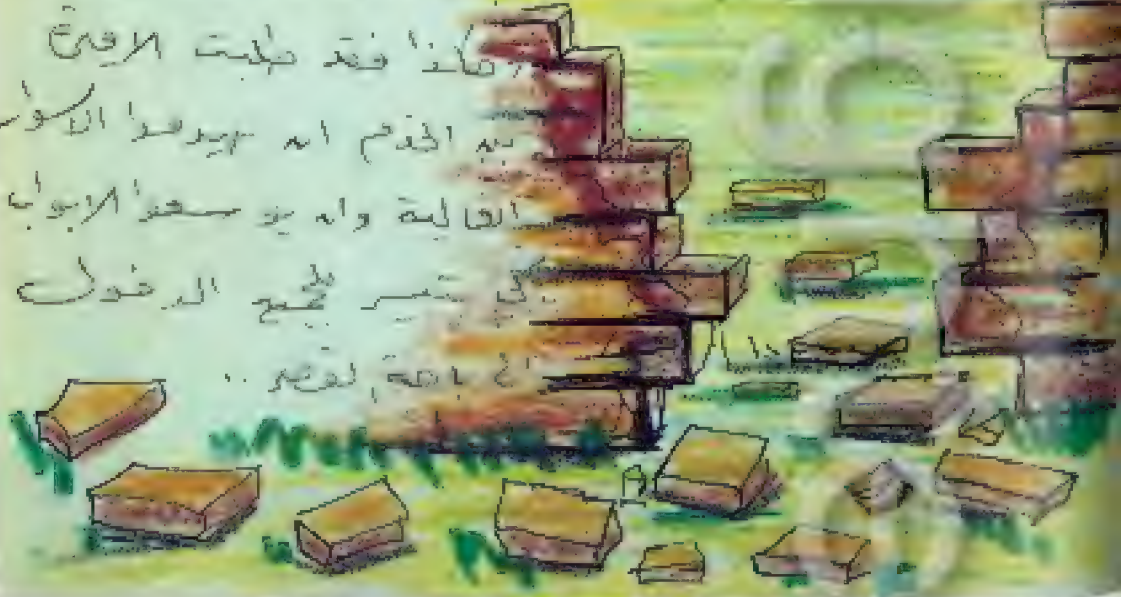 ولهذا فقد طلبت الاميرة
من الخدم ان يهدموا الاسوار
العالية وان يوسعوا الابواب
كي يتيسر للجميع الدخول
الى باحة القصر ..